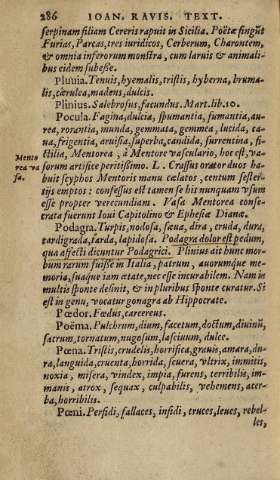 286 IOAN. RAVIS. TEXT.
serpinam filiam Cereris rapuit in Sicilia. Poëtæ fingũt
Furias, Parcas, tres iuridicos, Cerberum, Charontem,
& omnia inferorum monstra, cum laruis & animali-
bus eidem subesse.
Pluuia. Tenuis, hyemalis, tristis, hyberna, bruma-
lis, cærulea, madens, dulcis.
Plinius. Salebrosus, facundus. Mart. lib. 10.
Pocula. Fagina, dulcia, spumantia, fumantia, au-
rea, rorantia, munda, gemmata, gemmea, lucida, ca-
ua, frigentia, aruisia, superba, candida, surrentina, fi-
ctilia, Mentorea, à Mentore vasculario, hoc est, va-
Mento
rea va
sa.
sorum artifice peritissimo. L. Crassus orator duos ha-
buit scyphos Mentoris manu cælatos, centum sester-
tijs emptos: confessus est tamen se his nunquam vsum
esse propter verecundiam. Vasa Mentorea conse-
crata fuerunt Ioui Capitolino & Ephesiæ Dianæ.
Podagra. Turpis, nodosa, sæua, dira, cruda, dura,
tardigrada, tarda, lapidosa. Podagra dolor est pedum,
qua affecti dicuntur Podagrici. Plinius ait hunc mor-
bum rarum fuisse in Italia, patrum, auorumque me-
moria, suaque iam ætate, nec esse incurabilem. Nam in
multis sponte definit, & in pluribus sponte curatur. Si
est in genu, vocatur gonagra ab Hippocrate.
Pœdor. Fœdus, carcereus.
Poëma. Pulchrum, dium, facetum, doctum, diuinũ,
sacrum, tornatum, nugosum, lasciuum, dulce.
Pœna. Tristis, crudelis, horrifica, grauis, amara, du-
ra, languida, cruenta, horrida, seuera, vltrix, immitis,
noxia, misera, vindex, impia, furens, terribilis, im-
manis, atrox, sequax, culpabilis, vehemens, acer-
ba, horribilis.
Pœni. Perfidi, fallaces, infidi, truces, leues, rebel-
les,